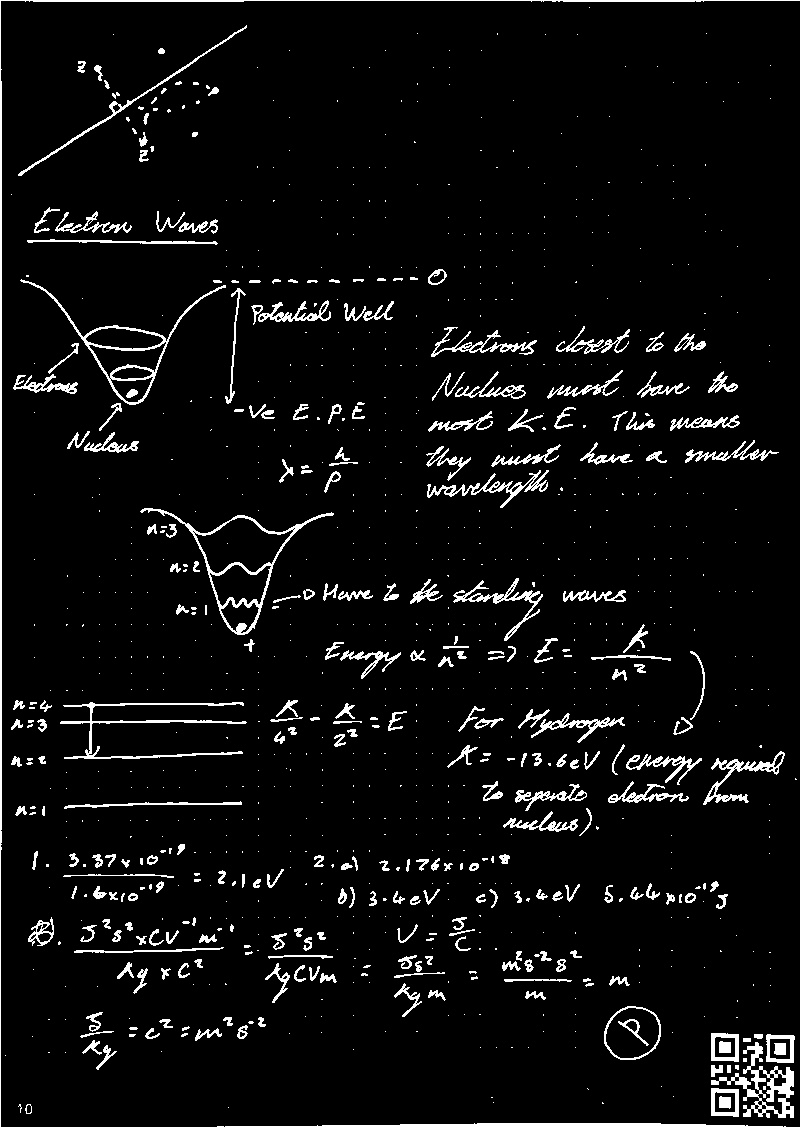 Z
Z'
Electron Waves
0
Potential Well
Electrons
Nucleus
-Ve E.P.E
λ = h/p
Electrons closest to the
Nuclues must have the
most K.E. This means
they must have a smaller
wavelength.
n=3
n=2
n=1
+
Have to be standing waves
Energy ∝ 1/n² => E = K/n²
n=4
n=3
n=2
n=1
K/4² - K/2² = E
For Hydrogen
K = -13.6eV (energy required
to seperate electron from
nucleus).
1. 3.37×10⁻¹⁹/1.6×10⁻¹⁹ = 2.1eV 2. a) 2.176×10⁻¹⁸
b) 3.4eV c) 3.4eV 5.44×10⁻¹⁹J
J²s²×CV⁻¹m⁻¹/Kg×C² = J²s²/KgCVm = Js²/Kgm = m²s⁻²s²/m = m
V = J/C
J/Kg = c² = m²s⁻²
P
10